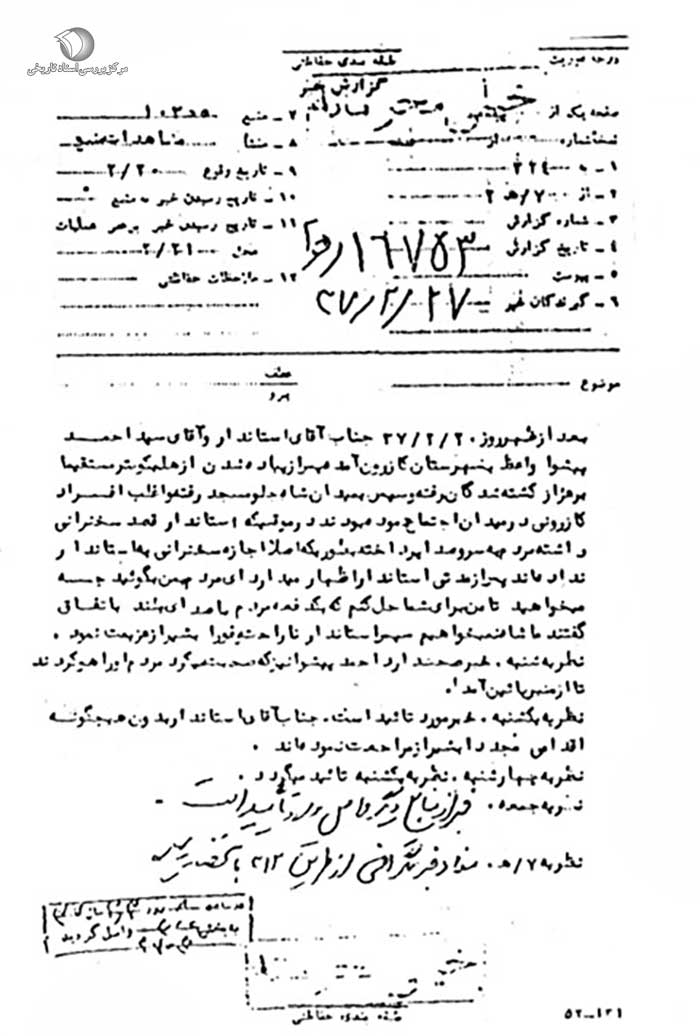 مرکز بررسی اسناد تاریخی
درجه فوریت
طبقه بندی حفاظتی
گزارش خبر
خیلی
صفحه یک از
نسخه شماره از
۱ ـ به ۳۲۴
۲ ـ از ۷/هـ ۲
۳ ـ شماره گزارش ۱۶۷۵۳
۴ ـ تاریخ گزارش ۳۷/۲/۲۷
۵ ـ پیوست
۶ ـ گیرندگان خبر
۷ ـ منبع
۸ ـ منشأ مشاهدات منبع
۹ ـ تاریخ وقوع ۲/۲۰
۱۰ ـ تاریخ رسیدن خبر به منبع
۱۱ ـ تاریخ رسیدن خبر برهبر عملیات
محل ۲/۲۱
۱۲ ـ ملاحظات حفاظتی
موضوع
عطف
پیرو
بعد از ظهر روز ۳۷/۲/۲۰ جناب آقای استاندار و آقای سید احمد
پیشوا واعظ بشهرستان کازرون آمده پس از پیاده شدن از هلیکوپتر مستقیما
بر مزار کشته شدگان رفته و سپس بمیدان شاه جلو مسجد رفته و اغلب افراد
کازرونی در میدان اجتماع نموده بودند در موقعیکه استاندار قصد سخنرانی
داشته مردم به سر و صدا پرداخته بطوریکه اصلا اجازه سخنرانی به استاندار
نداده‌اند پس از مدتی استاندار اظهار میدارد ای مردم بمن بگوئید چه
میخواهید تا من برای شما حل کنم که یکدفعه مردم با صدای بلند باتفاق
گفتند ما شاه نمیخواهیم سپس استاندار ناراحت و فورا بشیراز عزیمت نمود .
نظریه شنبه . خبر صحت دارد احمد پیشوا نیز که صحبت میکرد مردم او را هو کردند
تا از منبر پائین آمد .
نظریه یکشنبه . خبر مورد تائید است . جناب آقای استاندار بدون هیچگونه
اقدامی مجددا بشیراز مراجعت نموده‌اند .
نظریه چهارشنبه . نظریه یکشنبه تائید میگردد .
نظریه جمعه . خبر از منابع دیگر واصل و مورد تأیید است .
نظریه ۷/هـ . مفاد خبر تلگرافی از طریق ۳۱۲
واصل گردید
خیلی
طبقه بندی حفاظتی
۵۲ـ۱۲۱